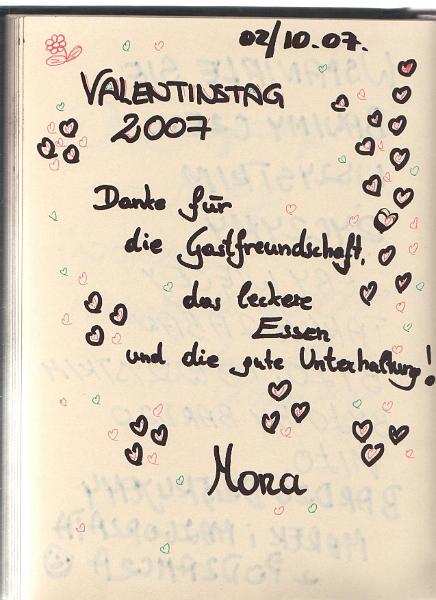 02/10.07.
VALENTINSTAG
2007
Danke für
die Gastfreundschaft,
das leckere
Essen
und die gute Unterhaltung!
Mona